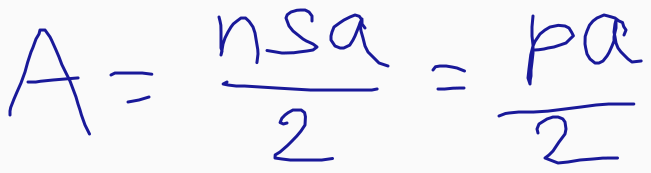 A = nsa/2 = pa/2